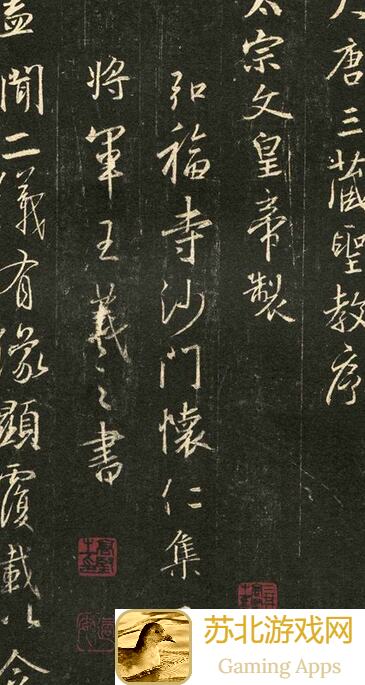 大唐三藏聖教序
太宗文皇帝製
弘福寺沙門懷仁集
將軍王羲之書
盖聞二儀有像顯覆載以含
苏北游戏网
Gaming Apps